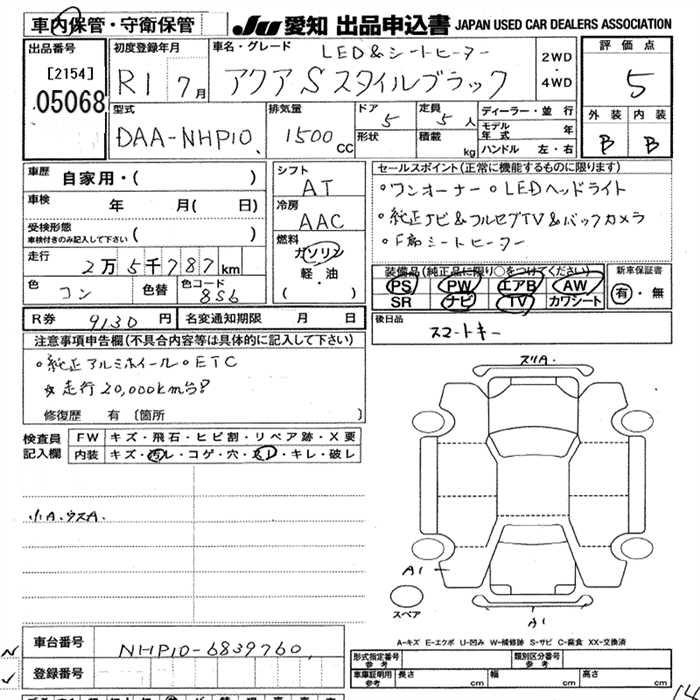 車内保管・守衛保管
JU 愛知 出品申込書 JAPAN USED CAR DEALERS ASSOCIATION
出品番号
[2154]
05068
初度登録年月
R1 7月
車名・グレード
LED&シートヒーター
アクア Sスタイルブラック
2WD
・
4WD
評価点
5
外装 内装
B B
型式
DAA-NHP10
排気量
1500 CC
ドア 5
形状
定員 5 人
積載 kg
ディーラー・並行
モデル年式 年
ハンドル 左・右
車歴
自家用・( )
車検 年 月( 日)
受検形態
車検付きのみ記入して下さい ( )
走行 2万5千787km
色 コン 色替 色コード 8S6
シフト
AT
冷房
AAC
燃料
ガソリン
軽・油
( )
セールスポイント(正常に機能するものに限ります)
・ワンオーナー・LEDヘッドライト
・純正ナビ&フルセグTV&バックカメラ
・F席シートヒーター
装備品(純正品に限り○をつけてください)
PS PW エアB AW
SR ナビ TV カワシート
新車保証書
有・無
R券 9130円 名変通知期限 月 日
後日品
スマートキー
注意事項申告欄(不具合内容等は具体的に記入して下さい)
・純正アルミホイール・ETC
☆走行20,000km台!
修復歴 有 〔箇所 〕
検査員
記入欄
FW キズ・飛石・ヒビ割・リペア跡・X要
内装 キズ・汚レ・コゲ・穴・スレ・キレ・破レ
小A.ウスA.
スリA.
A1
スペア
A1
A-キズ E-エクボ U-凹み W-補修跡 S-サビ C-腐食 XX-交換済
車台番号 NHP10-6839760
登録番号
型式指定番号
参考
類別区分番号
参考
車庫証明用
参考
長さ cm 幅 cm 高さ cm